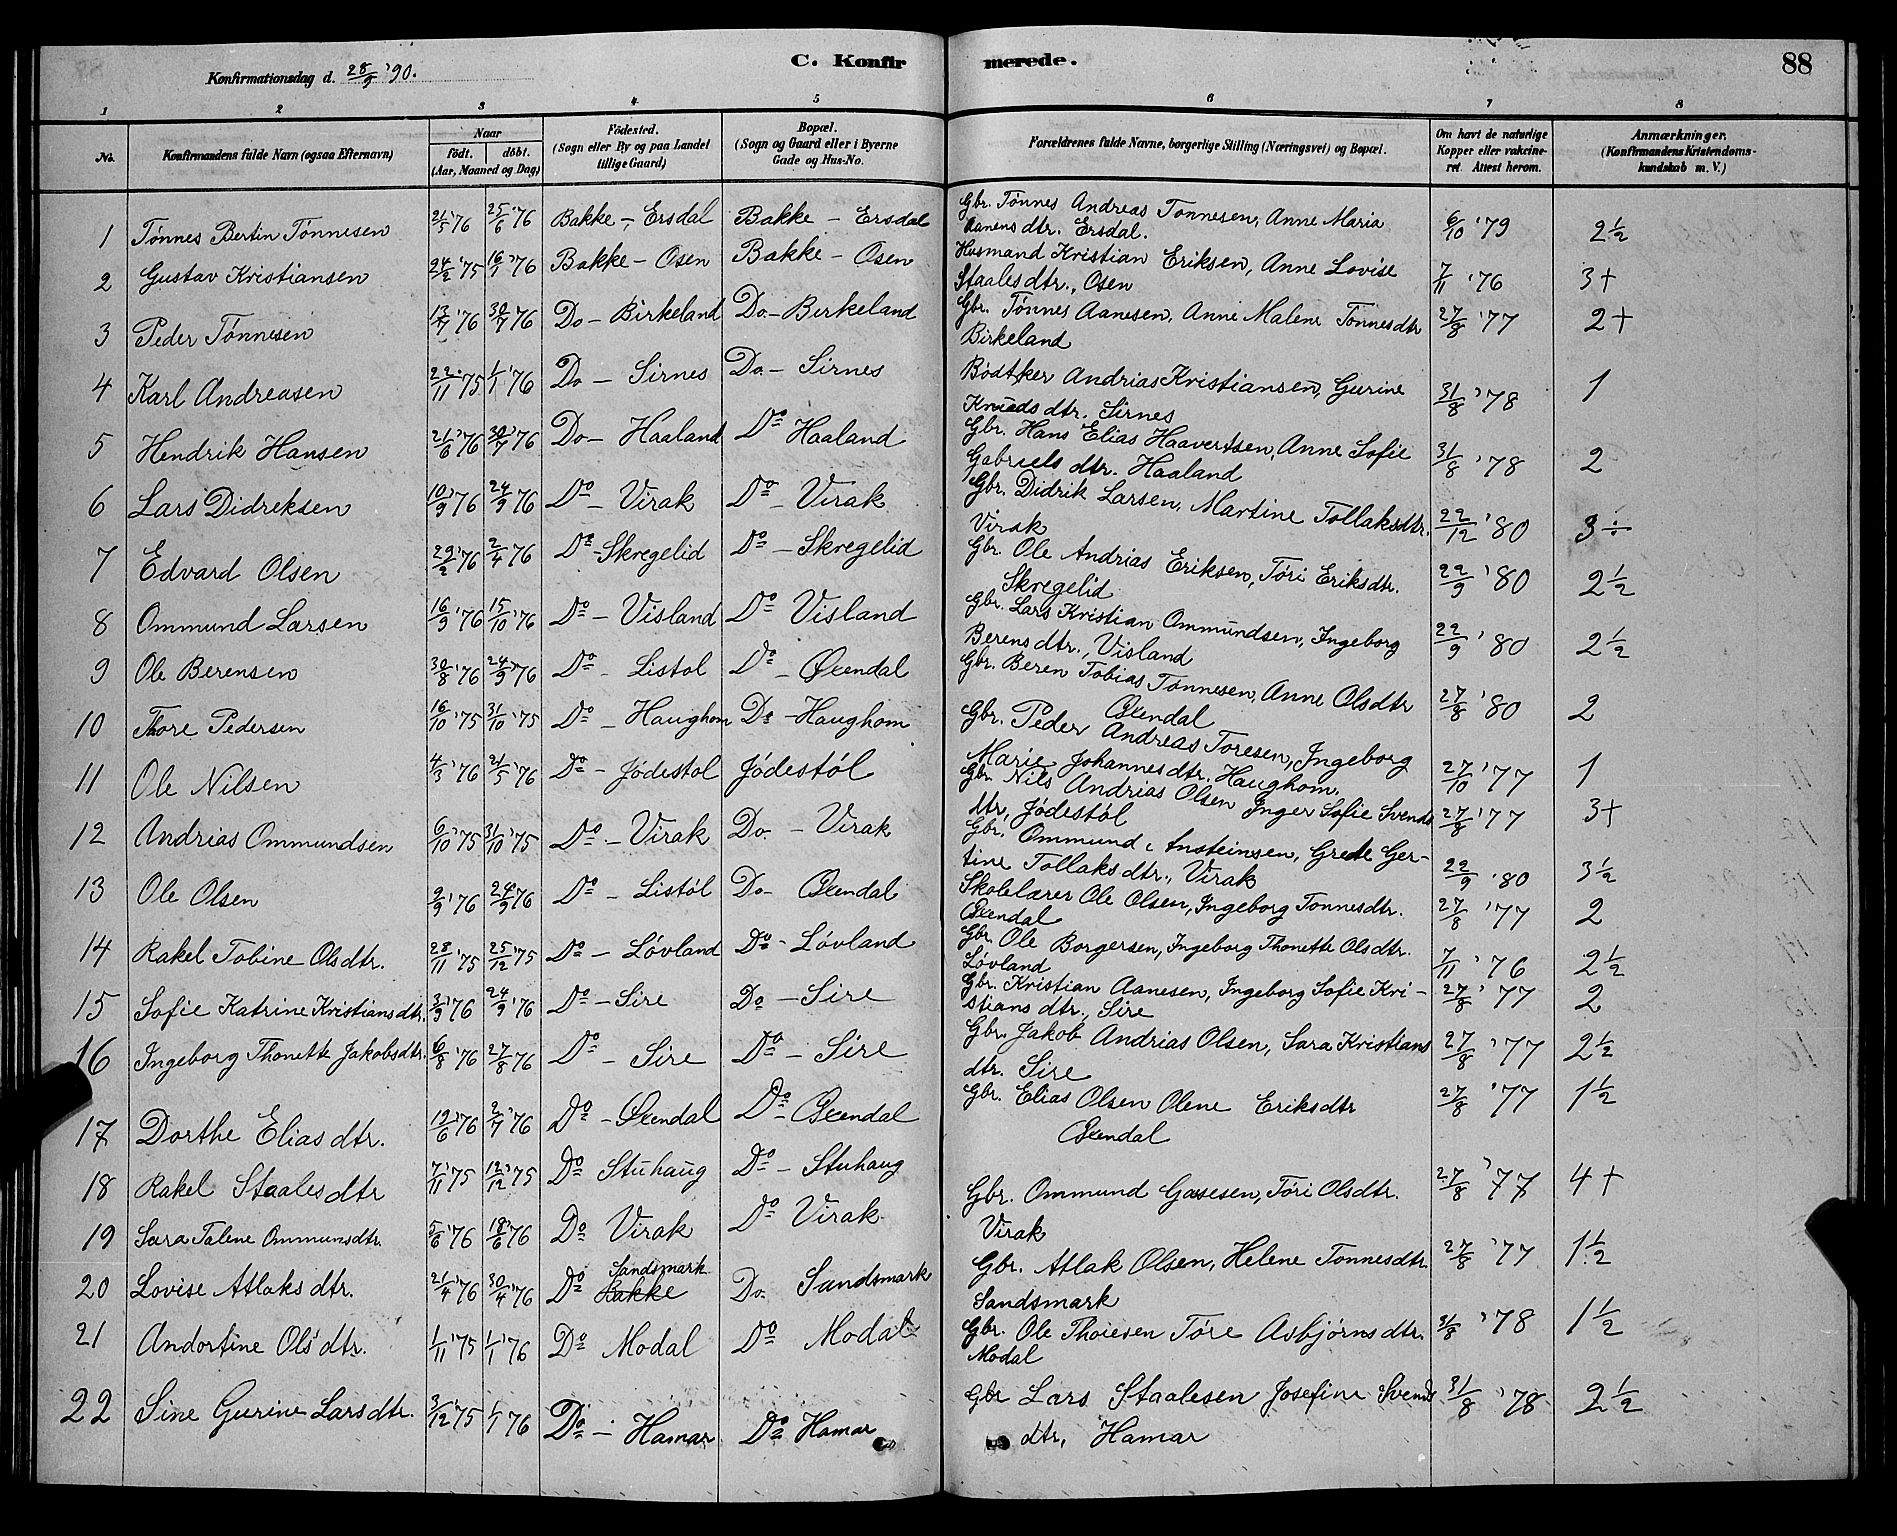 C. Konfirmerede.
88
Konfirmationsdag d. 28/9 '90.
1 2 3 4 5 6 7 8
No.
Konfirmandens fulde Navn (ogsaa Efternavn)
Naar
født. døbt.
(Aar, Maaned og Dag)
Fødested.
(Sogn eller By og paa Landet
tillige Gaard)
Bopæl.
(Sogn og Gaard eller i Byerne
Gade og Hus-No.
Forældrenes fulde Navne, borgerlige Stilling (Næringsvei) og Bopæl.
Om havt de naturlige
Kopper eller vakcine-
ret. Attest herom.
Anmærkninger.
(Konfirmandens Kristendoms-
kundskab m. V.)
1 Tønnes Bertin Tønnesen 21/5 '76 25/6 '76 Bakke - Ersdal Bakke - Ersdal Gbr. Tønnes Andreas Tønnesen, Anne Maria
Aanensdtr. Ersdal. 6/10 '79 2½
2 Gustav Kristiansen 24/2 '75 16/1 '76 Bakke - Osen Bakke - Osen Husmand Kristian Eriksen, Anne Lovise
Staalesdtr., Osen 7/11 '76 3+
3 Peder Tønnesen 13/7 '76 30/7 '76 Do - Birkeland Do - Birkeland Gbr. Tønnes Aanesen, Anne Malene Tønnesdtr
Birkeland 27/8 '77 2+
4 Karl Andreasen 22/11 '75 1/1 '76 Do - Sirnes Do - Sirnes Bødtker Andrias Kristiansen, Gurine
Knudsdtr. Sirnes 31/8 '78 1
5 Hendrik Hansen 21/6 '76 30/7 '76 Do - Haaland Do Haaland Gbr. Hans Elias Haavertsen, Anne Sofie
Gabriels dtr. Haaland 31/8 '78 2
6 Lars Didreksen 10/9 '76 24/9 '76 Do - Virak Do - Virak Gbr. Didrik Larsen, Martine Tollaksdtr.
Virak 22/12 '80 3÷
7 Edvard Olsen 29/2 '76 2/4 '76 Do - Skregelid Do - Skregelid Gbr. Ole Andrias Eriksen, Tøri Eriksdtr.
Skregelid 22/9 '80 2½
8 Ommund Larsen 16/9 '76 15/10 '76 Do - Visland Do Visland Gbr. Lars Kristian Ommundsen, Ingeborg
Berensdtr., Visland 22/9 '80 2½
9 Ole Berensen 30/8 '76 24/9 '76 Do - Listol Do - Øxendal Gbr. Beren Tobias Tønnesen, Anne Olsdtr
Øxendal 27/8 '80 2
10 Thore Pedersen 16/10 '75 31/10 '75 Do - Haughom Do - Haughom Gbr. Peder Andreas Toresen, Ingeborg
Marie Johannesdtr. Haughom. 27/10 '77 1
11 Ole Nilsen 4/3 '76 21/5 '76 Do - Jødestol Jødestøl Gbr. Nils Andrias Olsen Inger Sofie Svends
dtr, Jødestøl 27/8 '77 3+
12 Andrias Ommundsen 6/10 '75 31/10 '75 Do - Virak Do. - Virak Gbr. Ommund Ansteinsen, Grete Ger-
tine Tollaksdtr., Virak 22/9 '80 3½
13 Ole Olsen 2/9 '76 24/9 '76 Do - Listøl Do - Øxendal Skolelærer Ole Olsen, Ingeborg Tonnesdtr.
Øxendal 27/8 '77 2
14 Rakel Tobine Olsdtr. 28/11 '75 25/12 '75 Do - Løvland Do - Løvland Gbr. Ole Borgersen, Ingeborg Thonette Olsdtr.
Løvland 7/11 '76 2½
15 Sofie Katrine Kristiansdtr. 3/9 '76 24/9 '76 Do - Sire Do - Sire Gbr. Kristian Aanesen, Ingeborg Sofie Kri-
stiansdtr., Sire 27/8 '77 2
16 Ingeborg Thonette Jakobsdtr. 6/8 '76 27/8 '76 Do - Sire Do - Sire Gbr. Jakob Andrias Olsen, Sara Kristians
dtr. Sire 27/8 '77 2½
17 Dorthe Elias dtr. 12/6 '76 2/7 '76 Do - Øxendal Do Øxendal Gbr. Elias Olsen Olene Eriksdtr
Øxendal 27/8 '77 1½
18 Rakel Staalesdtr 7/11 '75 12/12 '75 Do Stuhaug Do - Stuhaug
19 Sara Talene Ommundsdtr. 5/6 '76 18/6 '76 Do Virak Do Virak Gbr. Ommund Gassesen, Tøri Olsdtr.
Virak 27/8 '77 4+
20 Lovise Atlaks dtr. 21/4 '76 30/4 '76 Do Bakke Sandsmark Do. Sandsmark Gbr. Atlak Olsen, Helene Tonnesdtr.
Sandsmark 27/8 '77 1½
21 Andortine Ols dtr. 1/11 '75 1/1 '76 Do Modal Do Modal Gbr. Ole Thoresen Tøre Asbjørnsdtr.
Modal 31/8 '78 1½
22 Sine Gurine Larsdtr. 3/12 '75 1/1 '76 Do - Hamar Do Hamar Gbr Lars Staalesen Josefine Svends
dtr, Hamar 31/8 '78 2½